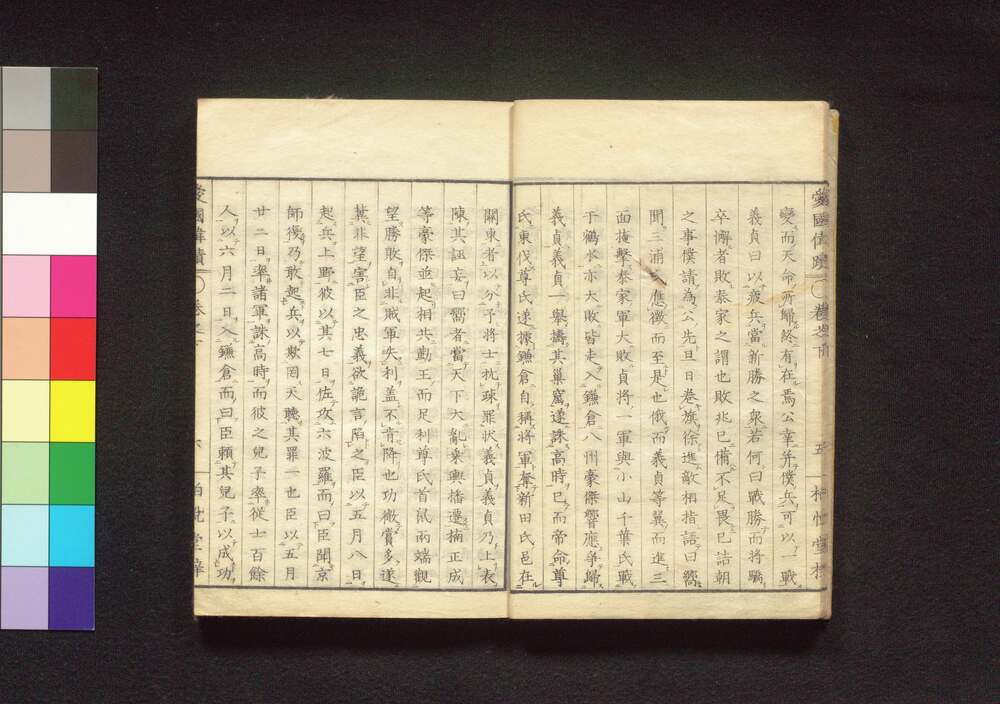 變而天命所歸終有在焉公幸并僕兵可以一戰
義貞曰以疲兵當新勝之衆若何曰戰勝而將驕
卒懈者敗秦家之謂也敗兆已備不足畏已詰朝
之事僕請為公先旦日卷旗徐進敵相指語曰嚮
聞三浦應徵而至是也俄而義貞等翼而進三
面掩擊泰家軍大敗貞將一軍與小山千葉氏戰
于鶴水亦大敗皆走入鎌倉八州豪傑響應爭歸
義貞義貞一舉擣其巢窟遂誅高時已而帝命尊
氏東伐尊氏遂據鎌倉自稱將軍奪新田氏邑在
愛國偉績 卷之下 五
關東者以分予將士抗疏罪狀義貞義貞乃上表
陳其誣妄曰嚮者當天下大亂乘輿播遷楠正成
等豪傑並起相共勤王而足利尊氏首鼠兩端觀
望勝敗自非賊軍失利蓋不肯降也功微賞多遂
萁非望害臣之忠義欲詭言陷之臣以五月八日
起兵上野彼以其七日佐攻六波羅而曰臣聞京
師復乃敢起兵以欺罔天聽其罪一也臣以五月
廿二日率諸軍誅高時而彼之兒子率從士百餘
人以六月二日入鎌倉而曰臣賴其兒子以成功
愛國偉績 卷之 六